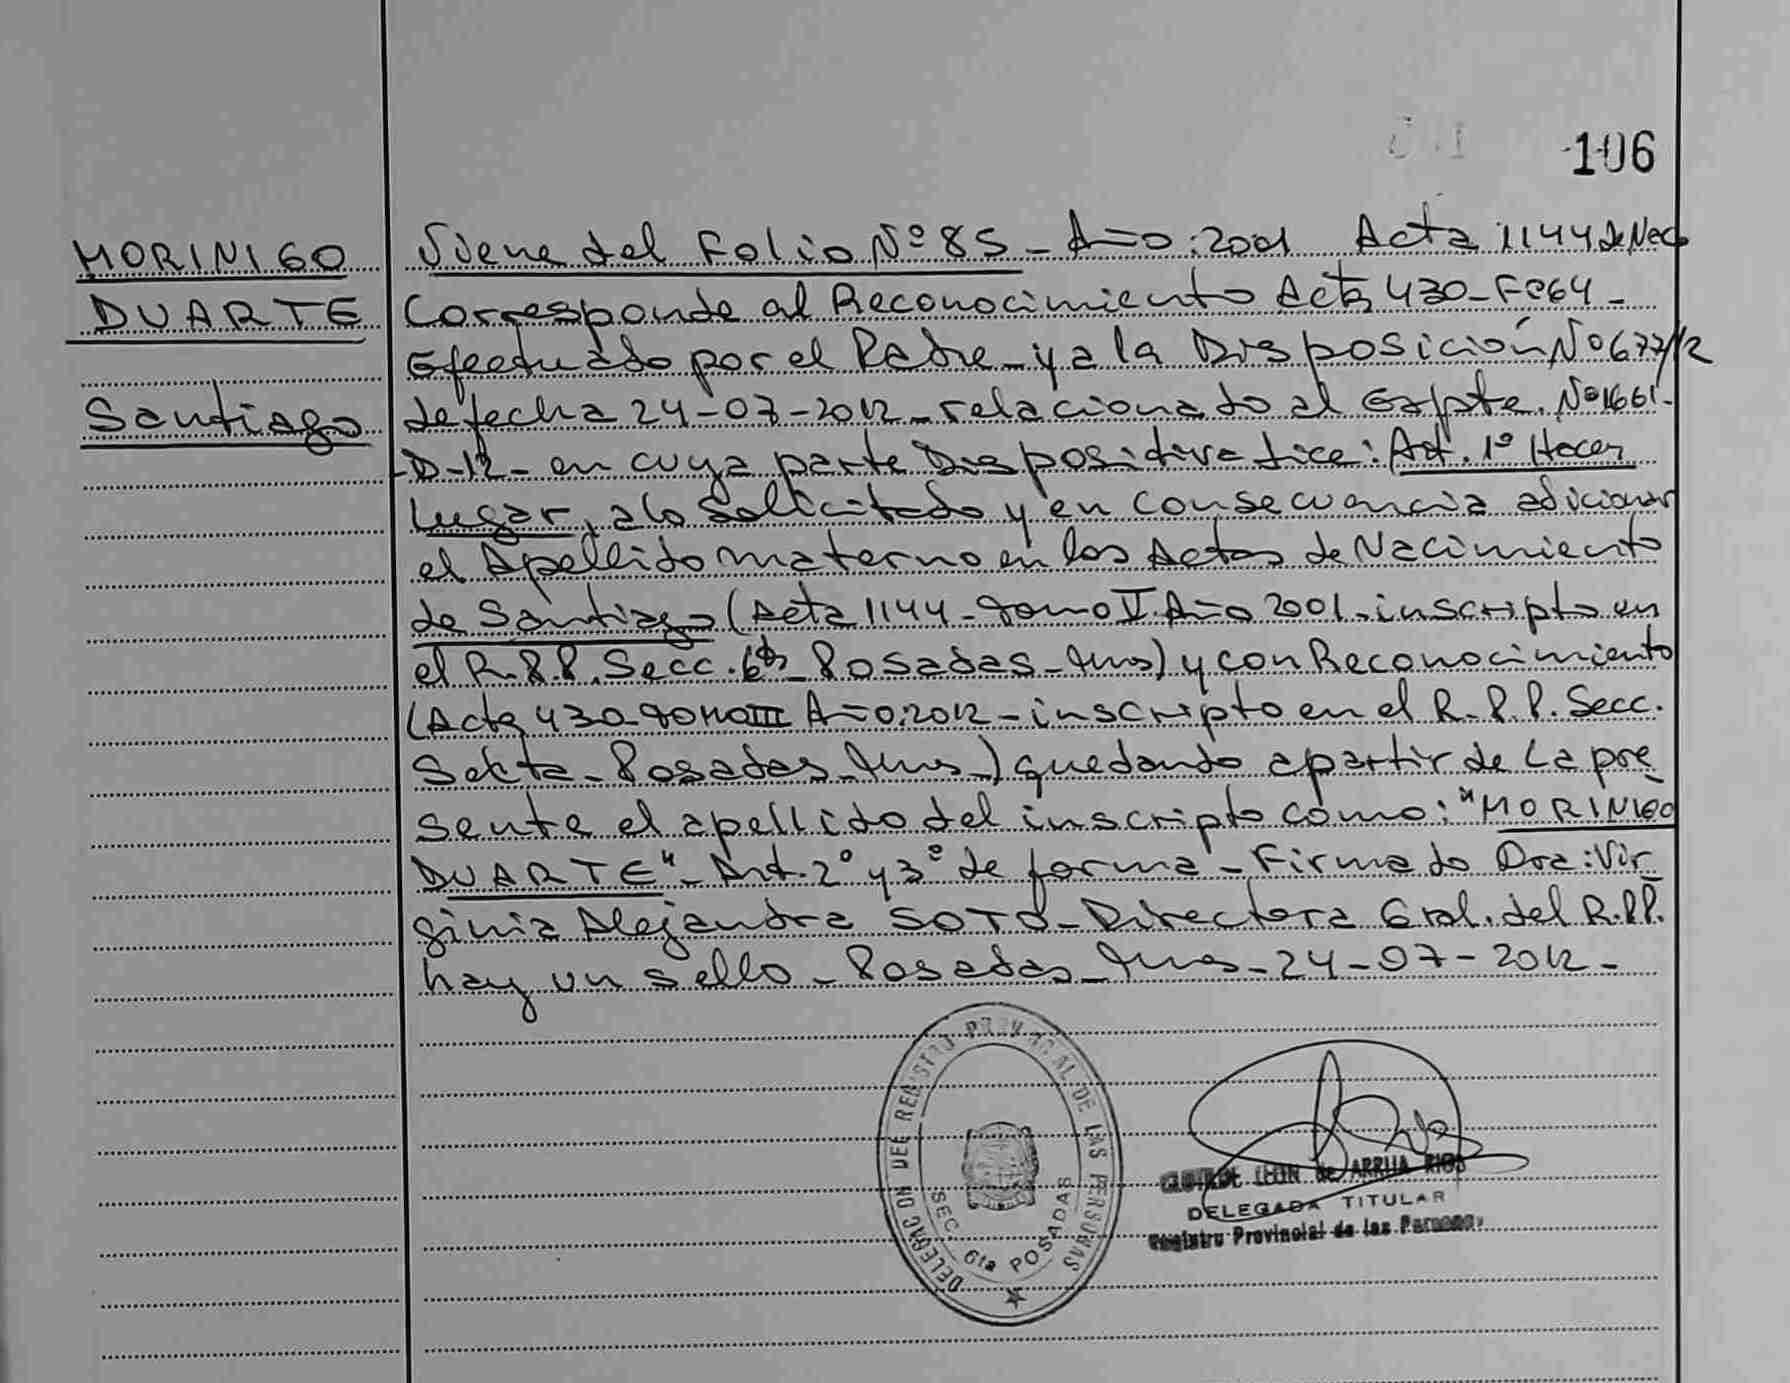 106
MORINIGO
DUARTE
Santiago
Viene del Folio Nº 85 - Año: 2001 Acta 1144 de Nac
Corresponde al Reconocimiento Acta 430 - Fº 64 -
Efectuado por el Padre - y a la Disposición Nº 677/12
de fecha 24-07-2012 - relacionado al Expte. Nº 1661-
-D-12 - en cuya parte Dispositiva dice: Art. 1º Hacer
Lugar, a lo solicitado y en consecuencia adicionar
el Apellido materno en los Actas de Nacimiento
de Santiago (Acta 1144 - Tomo V. Año 2001. inscripto en
el R.P.P. Secc. 6ta - Posadas - Mnes) y con Reconocimiento
(Acta 430 Tomo III Año: 2012 - inscripto en el R.P.P. Secc.
Sexta - Posadas - Mnes -) quedando a partir de La pre
sente el apellido del inscripto como: "MORINIGO
DUARTE" - Art. 2º y 3º de forma - Firmado Dra: Vir
ginia Alejandra SOTO - Directora Gral. del R.P.P.
hay un sello - Posadas - Mnes - 24-07-2012 -
DELEGACION DEL REGISTRO PROVINCIAL DE LAS PERSONAS
SEC. 6ta POSADAS
LEON de ARRUA RIOS
DELEGADA TITULAR
Registro Provincial de las Personas